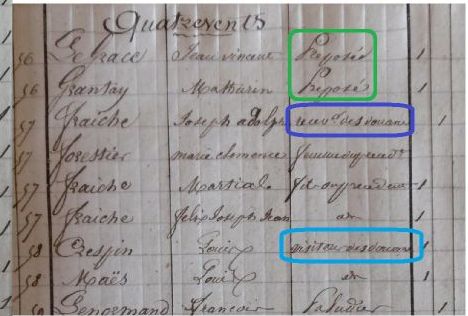 Quatrevents
56 Legrace Jean vincent Préposé 1
56 Grantay Mathurin Préposé 1
57 fraiche Joseph adolphe recev.r des douanes 1
57 forestier marie clemence femme du précédt
57 fraiche Martial fils du précédent 1
57 fraiche felix Joseph Jean idm 1
58 Crespin Louis visiteur des douanes 1
58 Maës Louis idm 1
Lenormand François Paludier